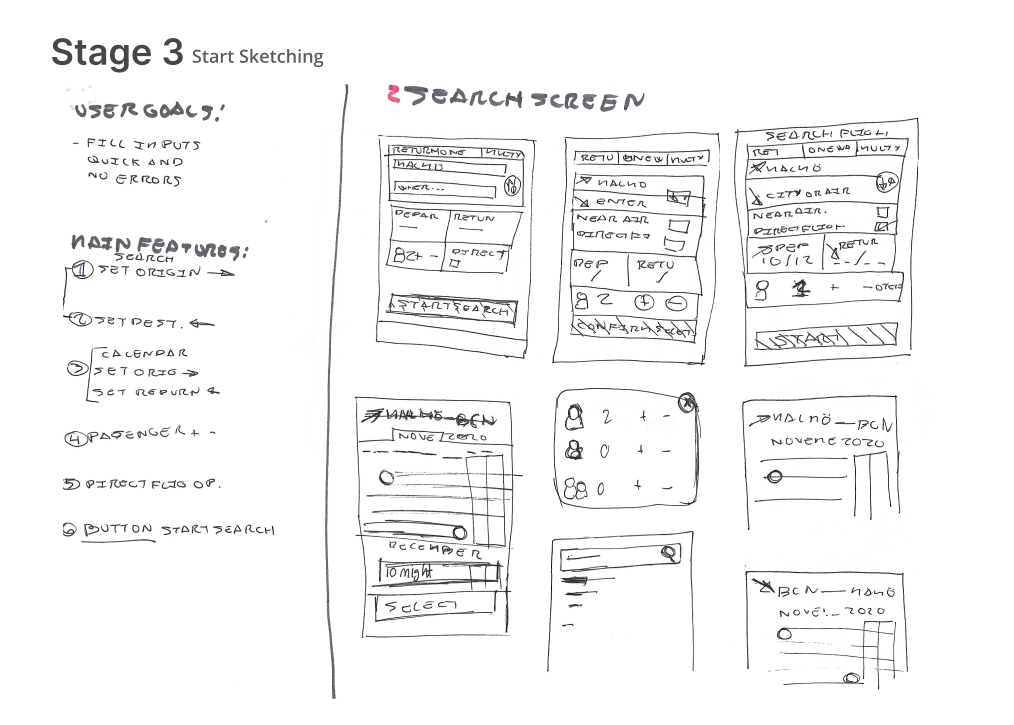 Stage 3 Start Sketching
USER GOALS:
- FILL INPUTS
QUICK AND
NO ERRORS
MAIN FEATURES:
SEARCH
1 SET ORIGIN →
2 SET DEST. ←
3 CALENDAR
SET ORIG →
SET REPURN ←
4 PASENGER + -
5 DIRECT FLIG OP.
6 BUTTON START SEARCH
2 SEARCH SCREEN
RETURN ONE MULTY
MALMÖ
WHER...
DEPAR RETUN
82+ - DIRECT
START SEARCH
RETU ONEW MULTY
MALMO
ENTER
NEAR AIR
DEP RETU
2 + -
SEARCH FLIGH
RET ONEWA MULTY
MALMÖ
CITY OR AIR
NEAR AIR.
DIRECT FLIGH
DEP RETUR
10/12 --/--
+ -
START
MALMÖ - BCN
NOVE 2020
DECEMBER
TOnight
SELECT
2 + -
0 + -
0 + -
X
MALMÖ — BCN
NOVEME 2020
BCN — MAMÖ
NOVE... 2020